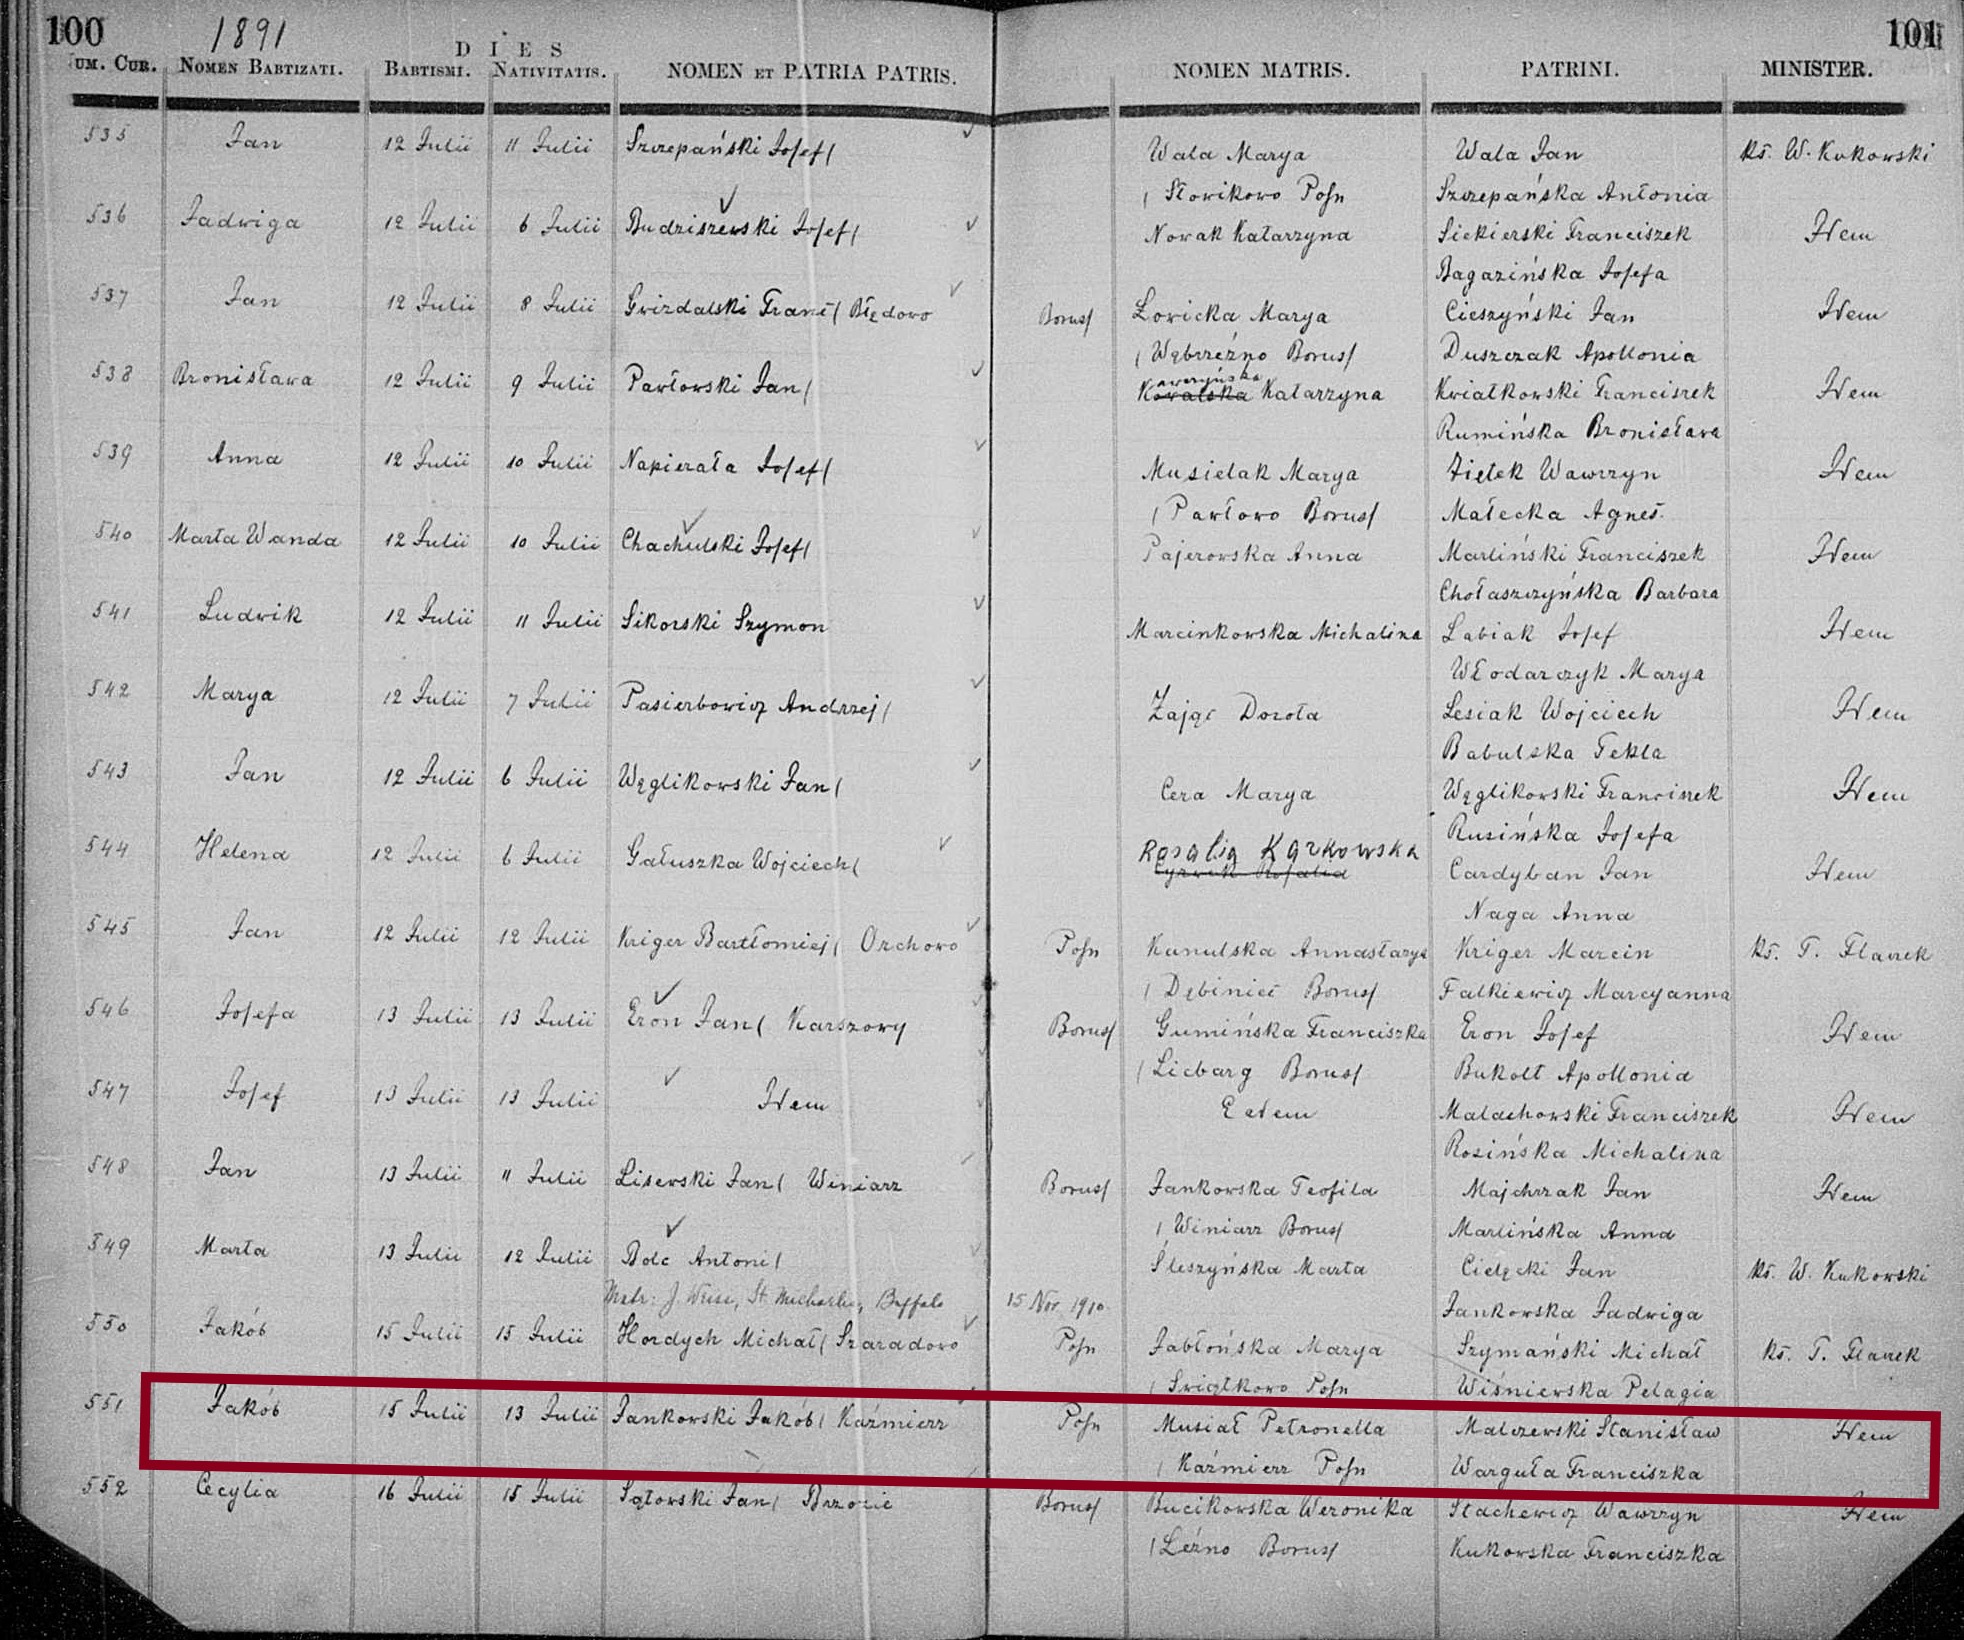 100 1891 DIES 101
UM. CUR. NOMEN BABTIZATI. BABTISMI. NATIVITATIS. NOMEN ET PATRIA PATRIS. NOMEN MATRIS. PATRINI. MINISTER.
535 Jan 12 Julii 11 Julii Szczepański Josef/ Wala Marya Wala Jan Ks. W. Kukowski
/ Słowikowo Posn Szczepańska Antonia
536 Jadwiga 12 Julii 6 Julii Budziszewski Josef/ Nowak Katarzyna Siekierski Franciszek Idem
Bagazińska Josefa
537 Jan 12 Julii 8 Julii Gwizdalski Franc/ Błędowo Boruss Lowicka Marya Cieszyński Jan Idem
/ Wąbrzeźno Boruss Duszczak Apollonia
538 Bronisława 12 Julii 9 Julii Pawłowski Jan/ Kowalska Katarzyna Kwiatkowski Franciszek Idem
Rumińska Bronisława
539 Anna 12 Julii 10 Julii Napierała Josef/ Musielak Marya Ziętek Wawrzyn Idem
/ Pawłowo Boruss Małecka Agnes
540 Marta Wanda 12 Julii 10 Julii Chachulski Josef/ Pajerowska Anna Marliński Franciszek Idem
Chołaszczyńska Barbara
541 Ludwik 12 Julii 11 Julii Sikorski Szymon Marcinkowska Michalina Labiak Josef Idem
Włodarczyk Marya
542 Marya 12 Julii 7 Julii Pasierbowicz Andrzej/ Zając Dorota Lesiak Wojciech Idem
Babulska Tekla
543 Jan 12 Julii 6 Julii Węglikowski Jan/ Cera Marya Węglikowski Franciszek Idem
Rusińska Josefa
544 Helena 12 Julii 6 Julii Gałuszka Wojciech/ Rosalia Karkowska Cardyban Jan Idem
Rosalia Naga Anna
545 Jan 12 Julii 12 Julii Kriger Bartłomiej/ Orchowo Posn Kanulska Kriger Marcin Ks. T. Flaczek
/ Dębiniec Boruss Falkiewicz Marcyanna
546 Josefa 13 Julii 13 Julii Eron Jan/ Karszowy Boruss Gumińska Franciszka Eron Josef Idem
/ Licbarg Boruss Bukolt Apollonia
547 Josef 13 Julii 13 Julii Idem Eadem Malachowski Franciszek Idem
Rosińska Michalina
548 Jan 13 Julii 11 Julii Lisewski Jan/ Winiarz Boruss Jankowska Teofila Majchrzak Jan Idem
/ Winiarz Boruss Marlińska Anna
549 Marta 13 Julii 12 Julii Bolc Antoni/ Śleszyńska Marta Cielęcki Jan Ks. W. Kukowski
Matr: J. Weiss, St. Michaelis, Buffalo 15 Nov. 1910. Jankowska Jadwiga
550 Jakób 15 Julii 15 Julii Hordych Michał/ Szaradowo Posn Jabłońska Marya Szymański Michał Ks. T. Flaczek
/ Swiątkowo Posn Wiśniewska Pelagia
551 Jakób 15 Julii 13 Julii Jankowski Jakób/ Kaźmierz Posn Musiał Petronella Malczewski Stanisław Idem
/ Kaźmierz Posn Warguła Franciszka
552 Cecylia 16 Julii 15 Julii Sątowski Jan/ Brzozie Boruss Bucikowska Weronika Stachewicz Wawrzyn Idem
/ Leźno Boruss Kukowska Franciszka